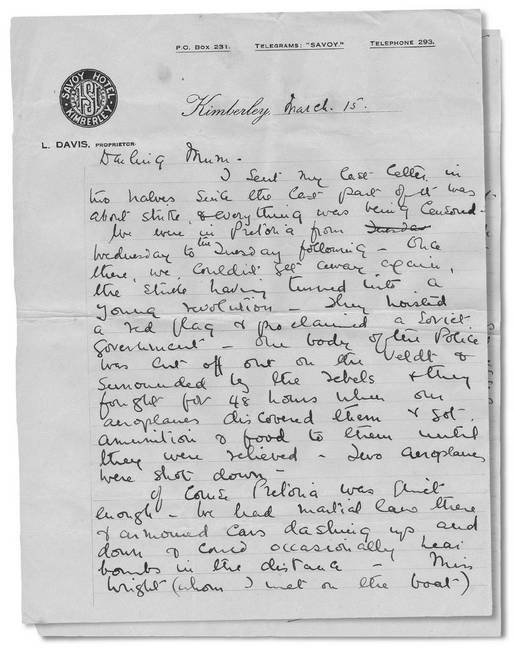 P.O. Box 231. Telegrams: "SAVOY." Telephone 293.
SAVOY HOTEL
KIMBERLEY
Kimberley, March. 15.
L. DAVIS, PROPRIETOR.
Darling Mum -
I sent my last letter in
two halves since the last part of it was
about strike, & everything was being censored -
We were in Pretoria from Tuesday
Wednesday to the Tuesday following - Once
there, we couldn't get away again,
the strike having turned into a
young revolution - They hoisted
a red flag & proclaimed a Soviet
Government - One body of the Police
was cut off out on the Veldt &
surrounded by the rebels & they
fought for 48 hours when our
aeroplanes discovered them & got
amunition & food to them until
they were relieved - Two aeroplanes
were shot down -
Of course Pretoria was quiet
enough - We had martial law there
& armoured cars dashing up and
down & could occasionally hear
bombs in the distance - Miss
Wright (whom I met on the boat)